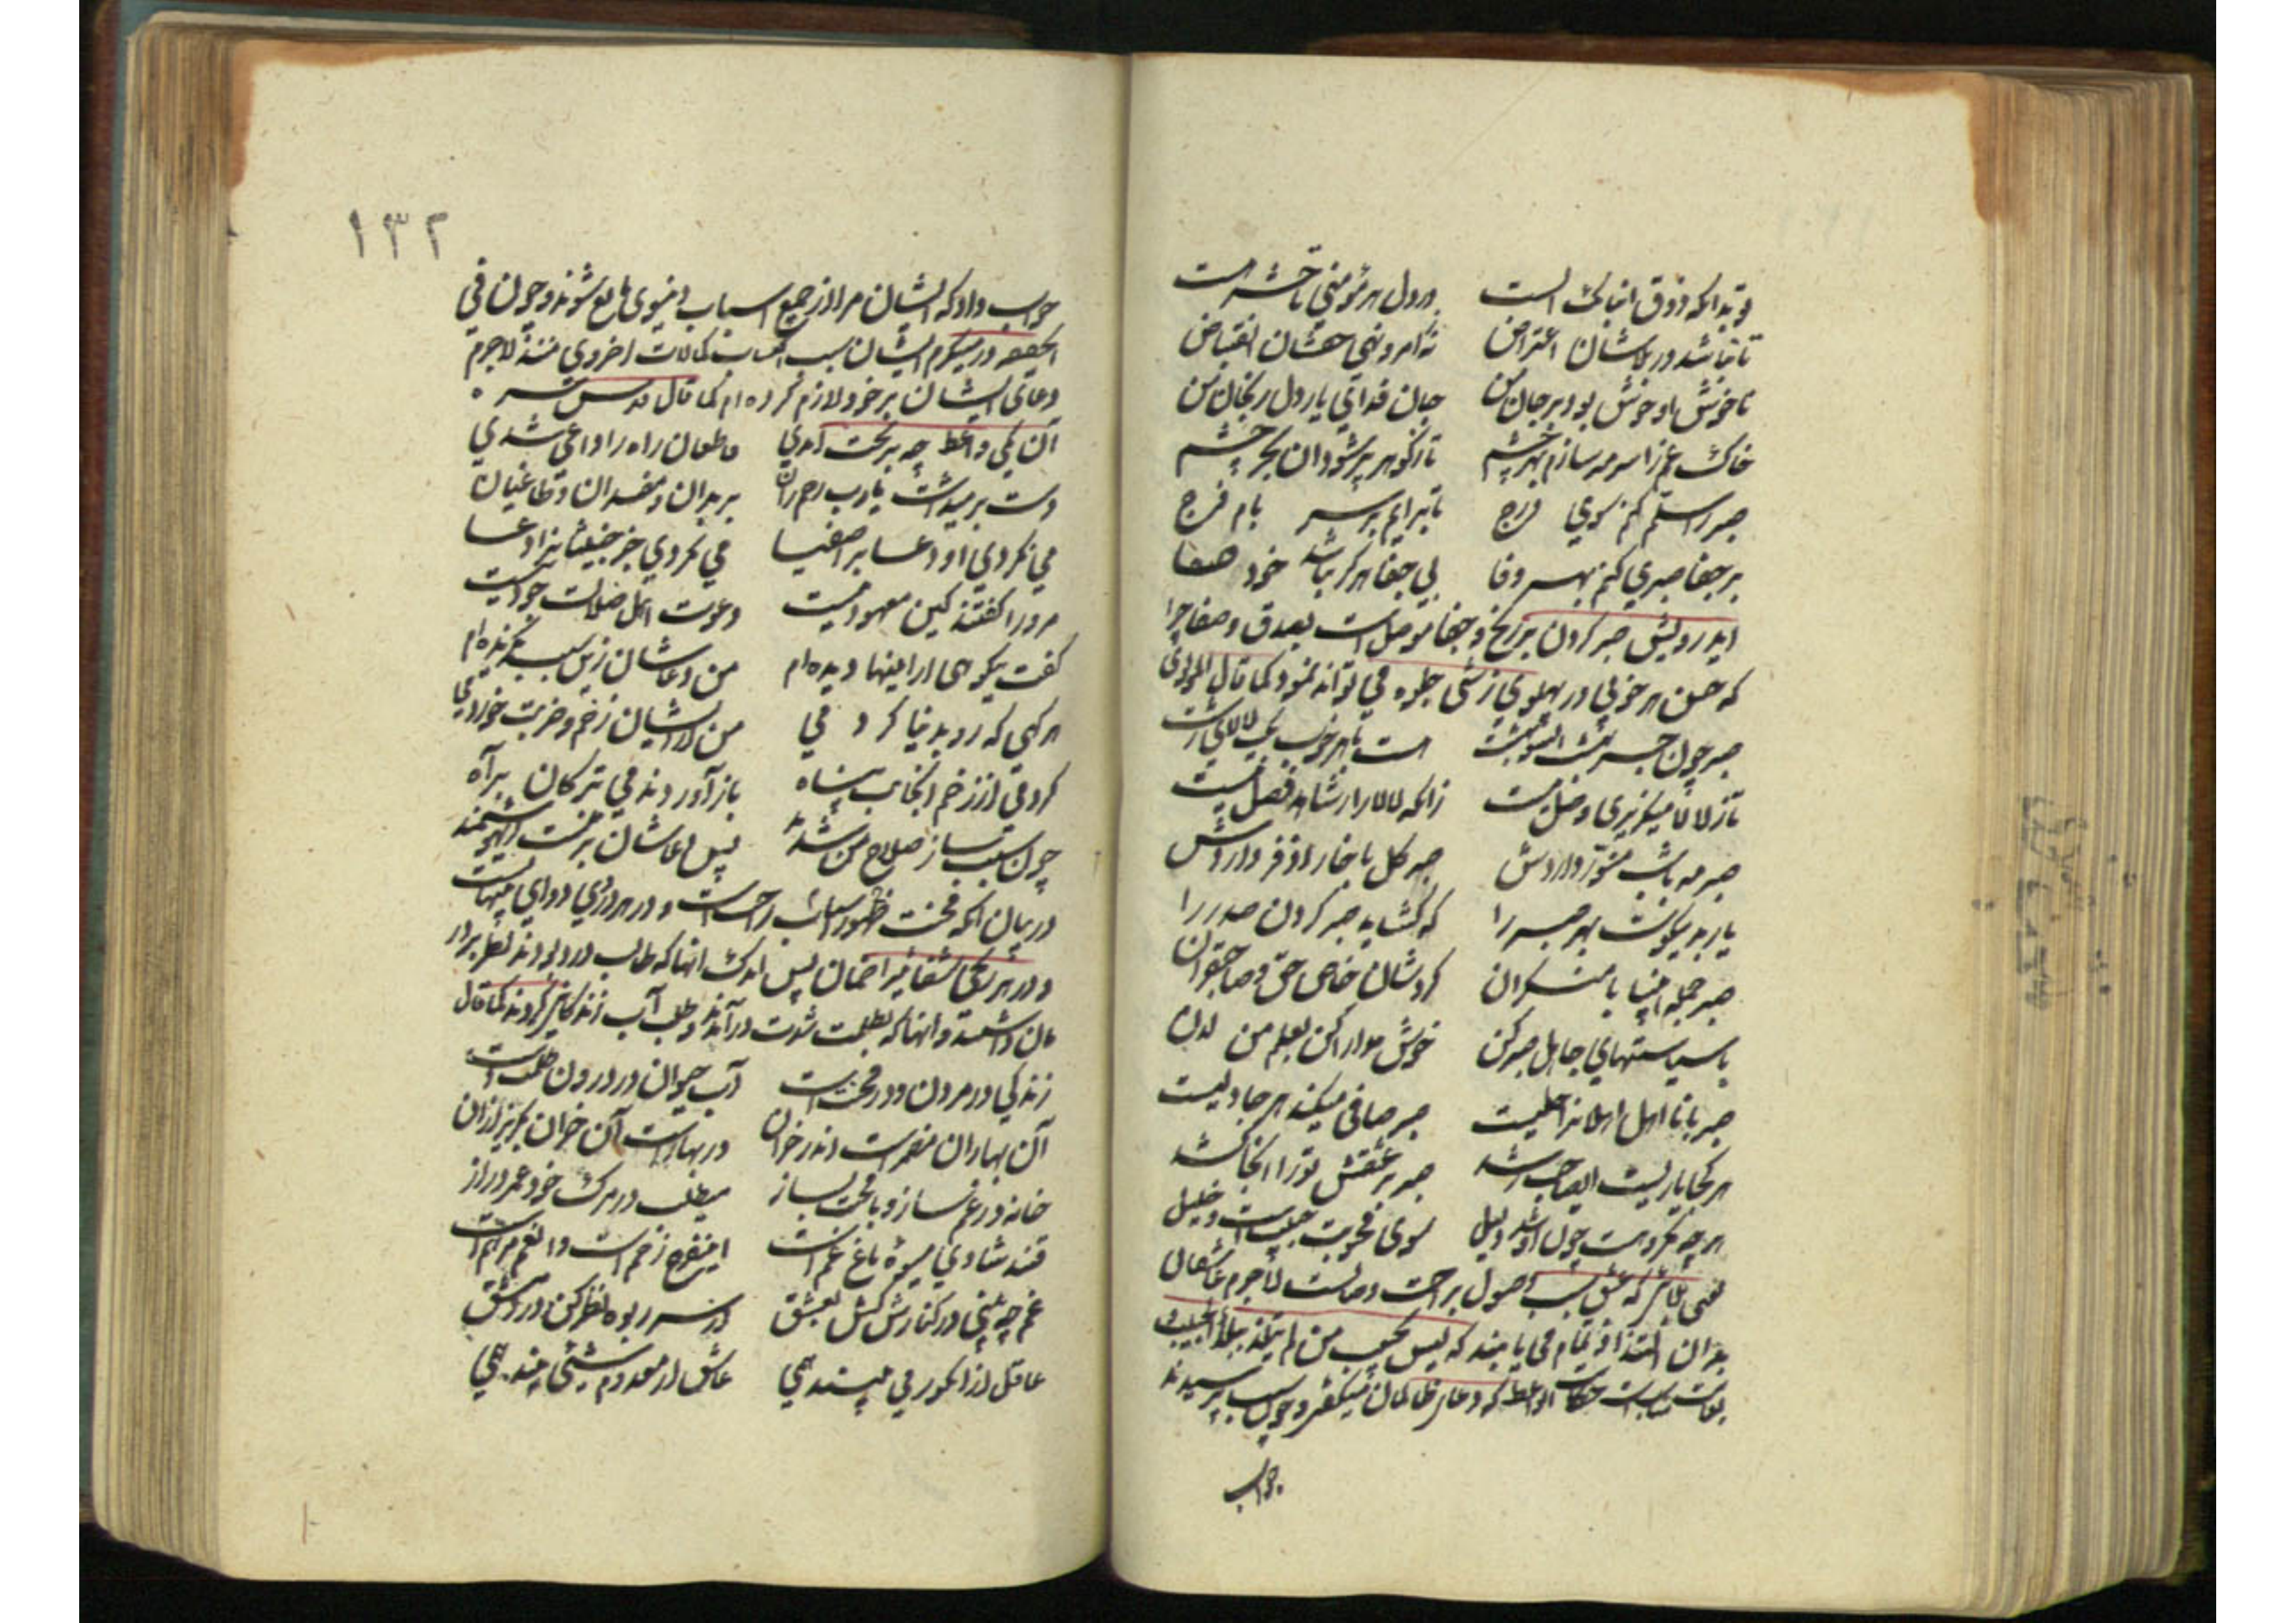 و تداکه ذوق انباکی الست در دل هر مؤمنی تا حشر هست
تا نباشد در بلاشان اعتراض نه ز امر و نهی حقشان انقباض
ناخوش او خوش بود بر جان من جان فدای یار دل رنجان من
خاک غم را سرمه سازم بهر چشم تا ز گوهر پر شود آن بحر چشم
صبر را سلم کنم سوی درج تا برایم بر سر بام فرج
بر جفا صبری کنم بهر وفا بی جفا هرگز نباشد خود صفا
ایدرویش صبر کردن بر رنج و جفا موصل است بصدق و صفا چرا
که حسن هر خوبی در پهلوی زشتی جلوه می تواند نمود کما قال المولوی
صبر چون جسر است انسو بهشت هست با هر خوب یک لالای زشت
تا ز لالا میگریزی وصل نیست زانکه لالا را ز شاهد فصل نیست
صبر مه با شب منور داردش صبر گل با خار اذفر داردش
یار بد نیکوست بهر صبر را که گشاید صبر کردن صدر را
صبر جمله انبیا با منکران کردشان خاص حق و صاحبقران
با سیاستهای جاهل صبر کن خوش مدارا کن بعلم من لدن
صبر با نااهل اهلانرا جلیست صبر صافی میکند هر جا دلیست
هر کجا یاریست
هر چه مکروهست چون او شد دلیل سوی محبوبت حبیبست و خلیل
که عشق سبب وصول براحت وصالست لاجرم عاشقان
بدان التذاذ تمام می یابند که لیس بمحب من لم یتلذذ ببلاء الحبیب و
حکایت ان واعظ که دعای ظالمان میکفت و چون سبب پرسیدند
جواب
۱۳۲
جواب داد که ایشان مرا از جمیع اسباب دنیوی مانع شوند و چون فی
الحقیقه در مینکرم ایشان سبب اکتساب کمالات اخروی منند لاجرم
دعای ایشان بر خود لازم کرده ام کما قال قدس سره
آن یکی واعظ چو بر تخت آمدی قاطعان راه را داعی شدی
دست برمیداشت یارب رحم ران بر بدان و مفسدان و طاغیان
می نکردی او دعا بر اصفیا می نکردی جز خبیثانرا دعا
مر ورا گفتند کین معهود نیست دعوت اهل ضلالت جود نیست
گفت نیکویی از اینها دیده ام من دعاشان زین سبب بگزیده ام
هر گهی که رو بدنیا کردمی من از ایشان زخم و ضربت خوردمی
کردمی از زخم آنجانب پناه باز آوردندمی ترکان براه
چون سبب ساز صلاح من شدند پس دعاشان بر منست ای هوشمند
در بیان انکه محنت ظهور اسباب راحت است و در هر دردی دوای پنهانست
و در هر رنجی شفائیرا ضمان پس اندک انها که طالب درد بودند نظر بر در
مان داشتند و انها که بظلمت شدت درآمدند طلب آب زندگانی کردند کما قال
زندگی در مردن و در محنتست آب حیوان در درون ظلمتست
آن بهاران مضمرست اندر خزان در بهارست آن خزان مگریز از آن
خانه در غم ساز و با محنت بساز میطلب در مرگ خود عمر دراز
قند شادی میوهٔ باغ غمست این فرح زخمست وان غم مرهمست
غم چو بینی در کنارش کش بعشق از سر ربوه نظر کن در دمشق
عاقل از انگور می بیند همی عاشق از معدوم شیئی بیند همی